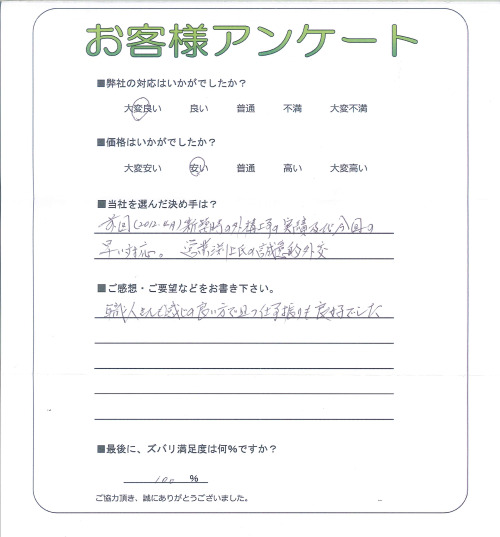 お客様アンケート
■弊社の対応はいかがでしたか？
大変良い 良い 普通 不満 大変不満
■価格はいかがでしたか？
大変安い 安い 普通 高い 大変高い
■当社を選んだ決め手は？
前回(2012.4月)新築時の外構工事の実績及び今回の
早い対応。営業 氏の誠意的外交
■ご感想・ご要望などをお書き下さい。
職人さんも感じの良い方で且つ仕事振りも良好でした
■最後に、ズバリ満足度は何％ですか？
100 ％
ご協力頂き、誠にありがとうございました。